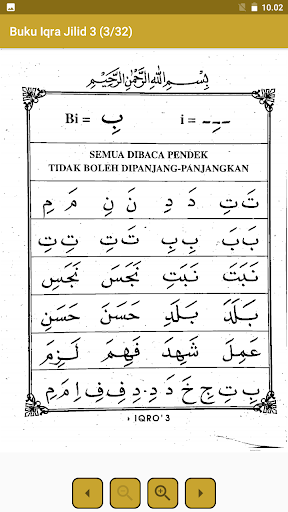 10.02
Buku Iqra Jilid 3 (3/32)
بِسْمِ اللهِ الرَّحْمٰنِ الرَّحِيْمِ
Bi = بِ i = ـِـ
SEMUA DIBACA PENDEK
TIDAK BOLEH DIPANJANG-PANJANGKAN
تَ تِ دَ دِ نَ نِ مَ مِ
بَبَ بِبِ تَتِ تِتِ
نَبَتَ نَبَتِ نَجَسَ نَجَسِ
بَلَدَ بَلَدِ حَسَنَ حَسَنِ
عَمِلَ شَهِدَ فَهِمَ لَزِمَ
بِ تِ جِ خَ دَ دِ دِ فِ فِ اِ مَ مِ
IQRO' 3